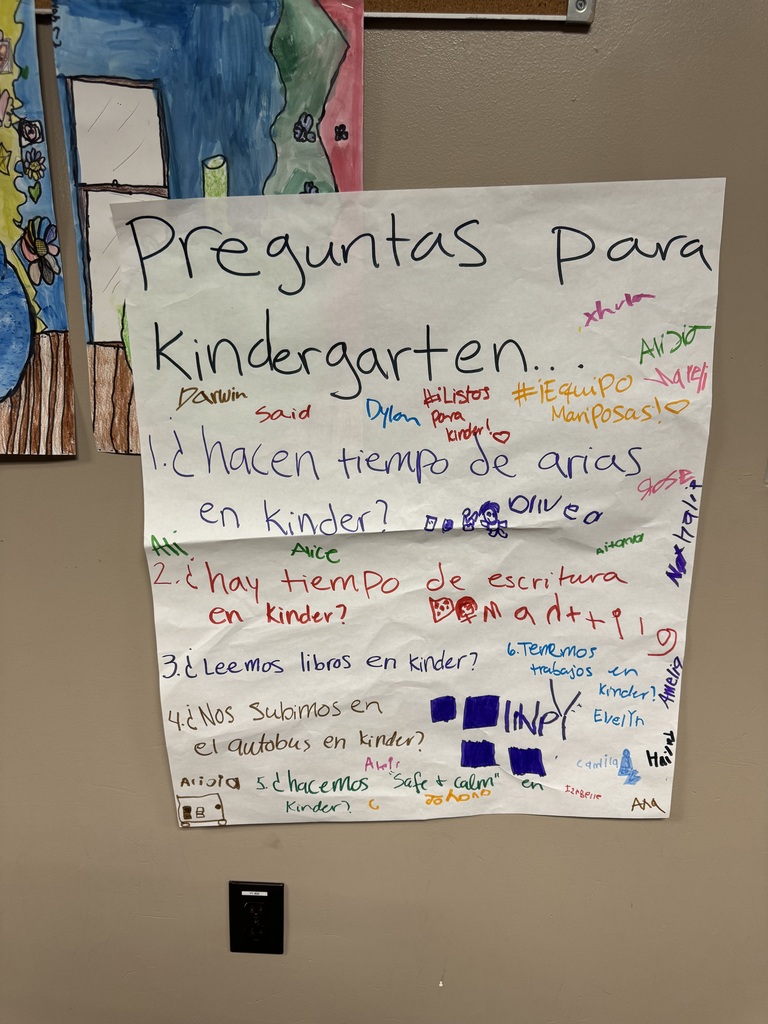 Preguntas para
xhula
Kindergarten...
Alisia
Nareli
Darwin
Said
Dylan
#¡Listos
para
kinder!
#¡Equipo
Mariposas!
1.¿hacen tiempo de arias
en kinder?
Olivea
Jose
Naxhalit
Ali
Alice
Aitana
2.¿hay tiempo de escritura
en kinder?
3.¿Leemos libros en kinder?
6.Tenemos
trabajos en
kinder?
Amelia
4.¿Nos subimos en
el autobus en kinder?
Evelyn
Camila
Ariola
5.¿hacemos "Safe + calm" en
kinder?
Izabelle
Ana